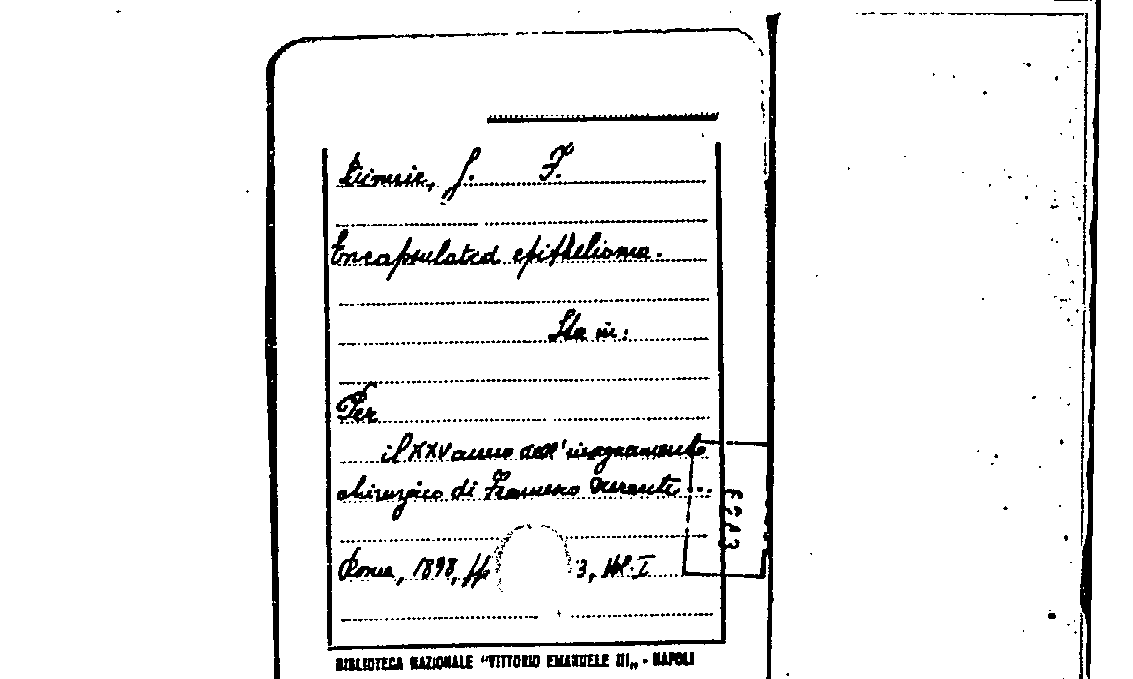 Binnie, J. F.
Encapsulated epithelioma.
Sta in:
Per
il XXV anno dell'insegnamento
chirurgico di Francesco Durante...
Roma, 1898, pp 3, Vol. I
BIBLIOTECA NAZIONALE "VITTORIO EMANUELE III" - NAPOLI